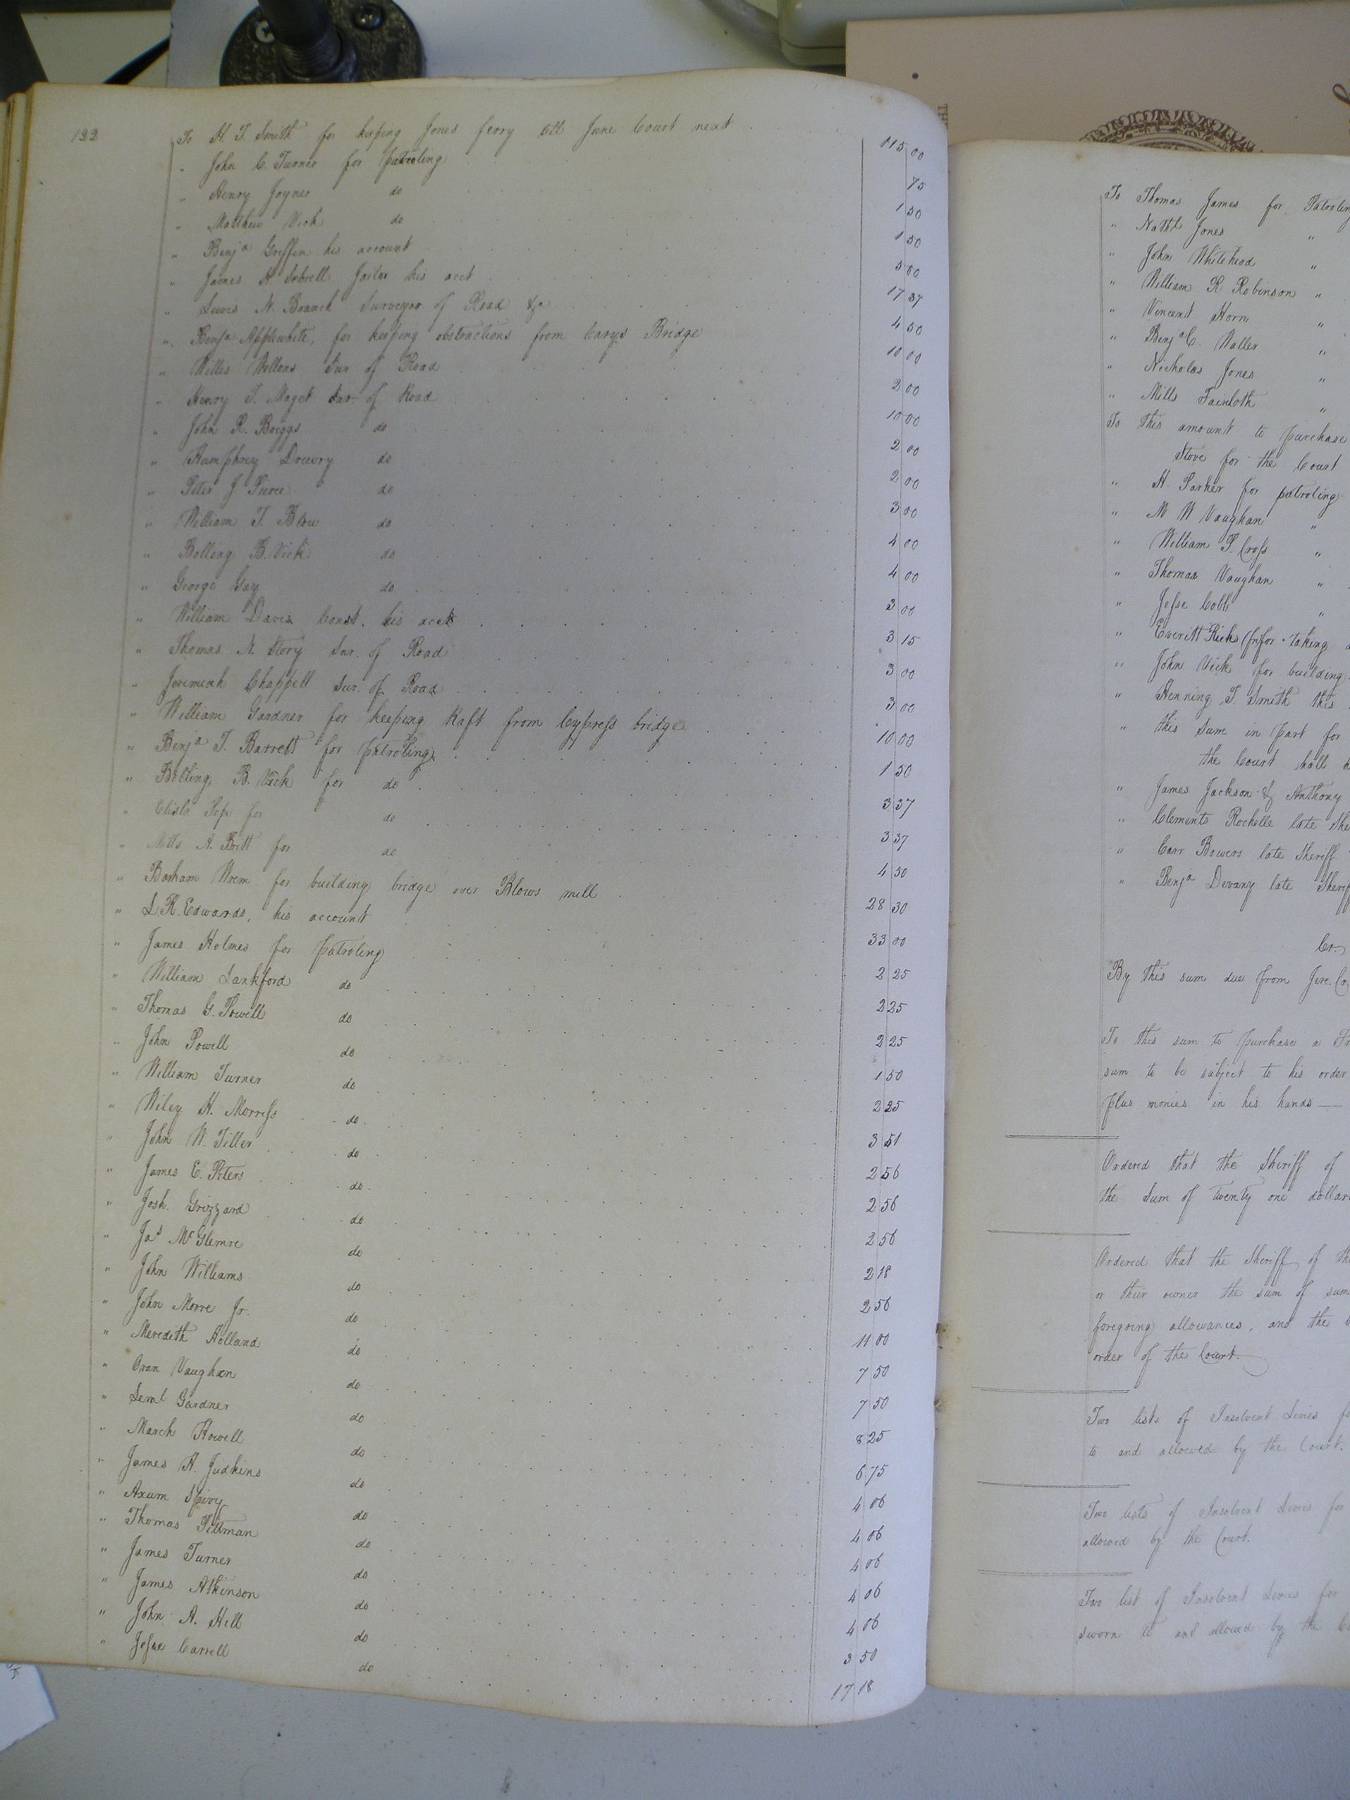 122
To H. T. Smith for keeping Jones ferry till June Court next 115 00
" John C. Turner for patroling 75
" Henry Joyner do 1 50
" Matthew Vick do 1 50
" Benja Griffin his account 5 00
" James H. Jailor his acct 17 37
" Lewis N. Branch Surveyor of Road &c 4 50
" Benja Applewhite, for keeping obstructions from Carys Bridge 10 00
" Willis Sur of Road 2 00
" Henry T. Maget Sur of Road 10 00
" John R. Briggs do 2 00
" Humphrey Drewry do 2 00
" Peter J. Pierce do 3 00
" William T. Blow do 4 00
" Bolling B. Vick do 4 00
" George Gay do 2 00
" William Davis Const. his acct 3 15
" Thomas N. Story Sur. of Road 3 00
" Jeremiah Chappell Sur. of Road 3 00
" William Gardner for keeping Raft from Cypress bridge 10 00
" Benja T. Barrett for patroling 1 50
" Bolling B. Vick for do 3 37
" Pope for do 3 37
" Mills A. Britt for do 4 50
" Barham for building bridge over Blows mill 28 30
" L R. Edwards, his account 33 00
" James Holmes for patroling 2 25
" William Lankford do 2 25
" Thomas G. Powell do 2 25
" John Powell do 1 50
" William Turner do 2 25
" Wiley H. Morress do 3 51
" John W. Tiller do 2 56
" James E. Peters do 2 56
" Josh. Grizzard do 2 56
" Jas McGlemre do 2 18
" John Williams do 2 56
" John Morre Jr. do 11 00
" Meredith Holland do 7 50
" Oran Vaughan do 7 50
" Leml Gardner do 8 25
" March Howell do 6 75
" James H. Judkins do 4 06
" Axum Spivy do 4 06
" Thomas Pittman do 4 06
" James Turner do 4 06
" James Atkinson do 4 06
" John A. Hill do 3 50
" Jesse Carrell do 17 18
To Thomas James for Patroling
" Nathl Jones "
" John Whitehead "
" William R Robinson "
" Vincent Horn "
" Benja C. Waller "
" Nicholas Jones "
" Mills Faircloth "
To this amount to purchase
stove for the Court
" H Parker for patroling
" M W Vaughan "
" William P. Cross "
" Thomas Vaughan "
" Jesse Cobb "
" Everitt Ricks for taking
" John Vick for building
" Henning T. Smith this
" this sum in part for
the Court hall
" James Jackson & Anthony
" Clements Rochelle late She
" Carr Bowers late Sheriff
" Benja Devany late Sheriff
Cr.
By this sum due from Jere. Co
To this sum to purchase a
sum to be subject to his order
plus monies in his hands
Ordered that the Sheriff of
the Sum of twenty one dollars
Ordered that the Sheriff of th
or their owner the sum of sum
foregoing allowances, and the
order of the Court.
Two lists of Insolvent Levies f
to and allowed by the Court.
Two lists of Insolvent Levies for
allowed by the Court.
Two list of Insolvent Levies for
sworn to and allowed by the C